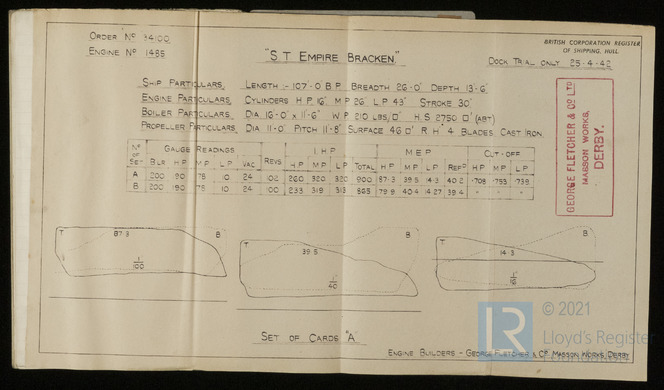 ORDER Nº 34100
ENGINE Nº 1485
"S T EMPIRE BRACKEN"
BRITISH CORPORATION REGISTER
OF SHIPPING, HULL.
DOCK TRIAL ONLY 25-4-42
SHIP PARTICULARS. LENGTH :- 107-0 B P BREADTH 26-0" DEPTH 13-6"
ENGINE PARTICULARS CYLINDERS H P 16" M P 26" L P 43" STROKE 30"
BOILER PARTICULARS DIA 16-0" x 11-6" W P 210 LBS/□" H S 2750 □' (ABT)
PROPELLER PARTICULARS DIA 11-0" PITCH 11-8" SURFACE 46 □' R H 4 BLADES CAST IRON.
Nº OF SET GAUGE READINGS REVS I H P M E P CUT-OFF
BLR H P M P L P VAC H P M P L P TOTAL H P M P L P REFD H P M P L P
A 200 190 78 10 24 102 260 320 320 900 87·3 39·5 14·3 40·2 ·708 ·753 ·739
B 200 190 78 10 24 100 233 319 313 865 79·9 40·4 14·27 39·4 " " "
GEORGE FLETCHER & Cº LTD
MASSON WORKS,
DERBY.
T 87·3 B
1/100
T 39·5 B
1/40
T 14·3 B
SET OF CARDS "A"
ENGINE BUILDERS - GEORGE FLETCHER & Cº MASSON WORKS, DERBY
LR
© 2021
Lloyd's Register
Foundation